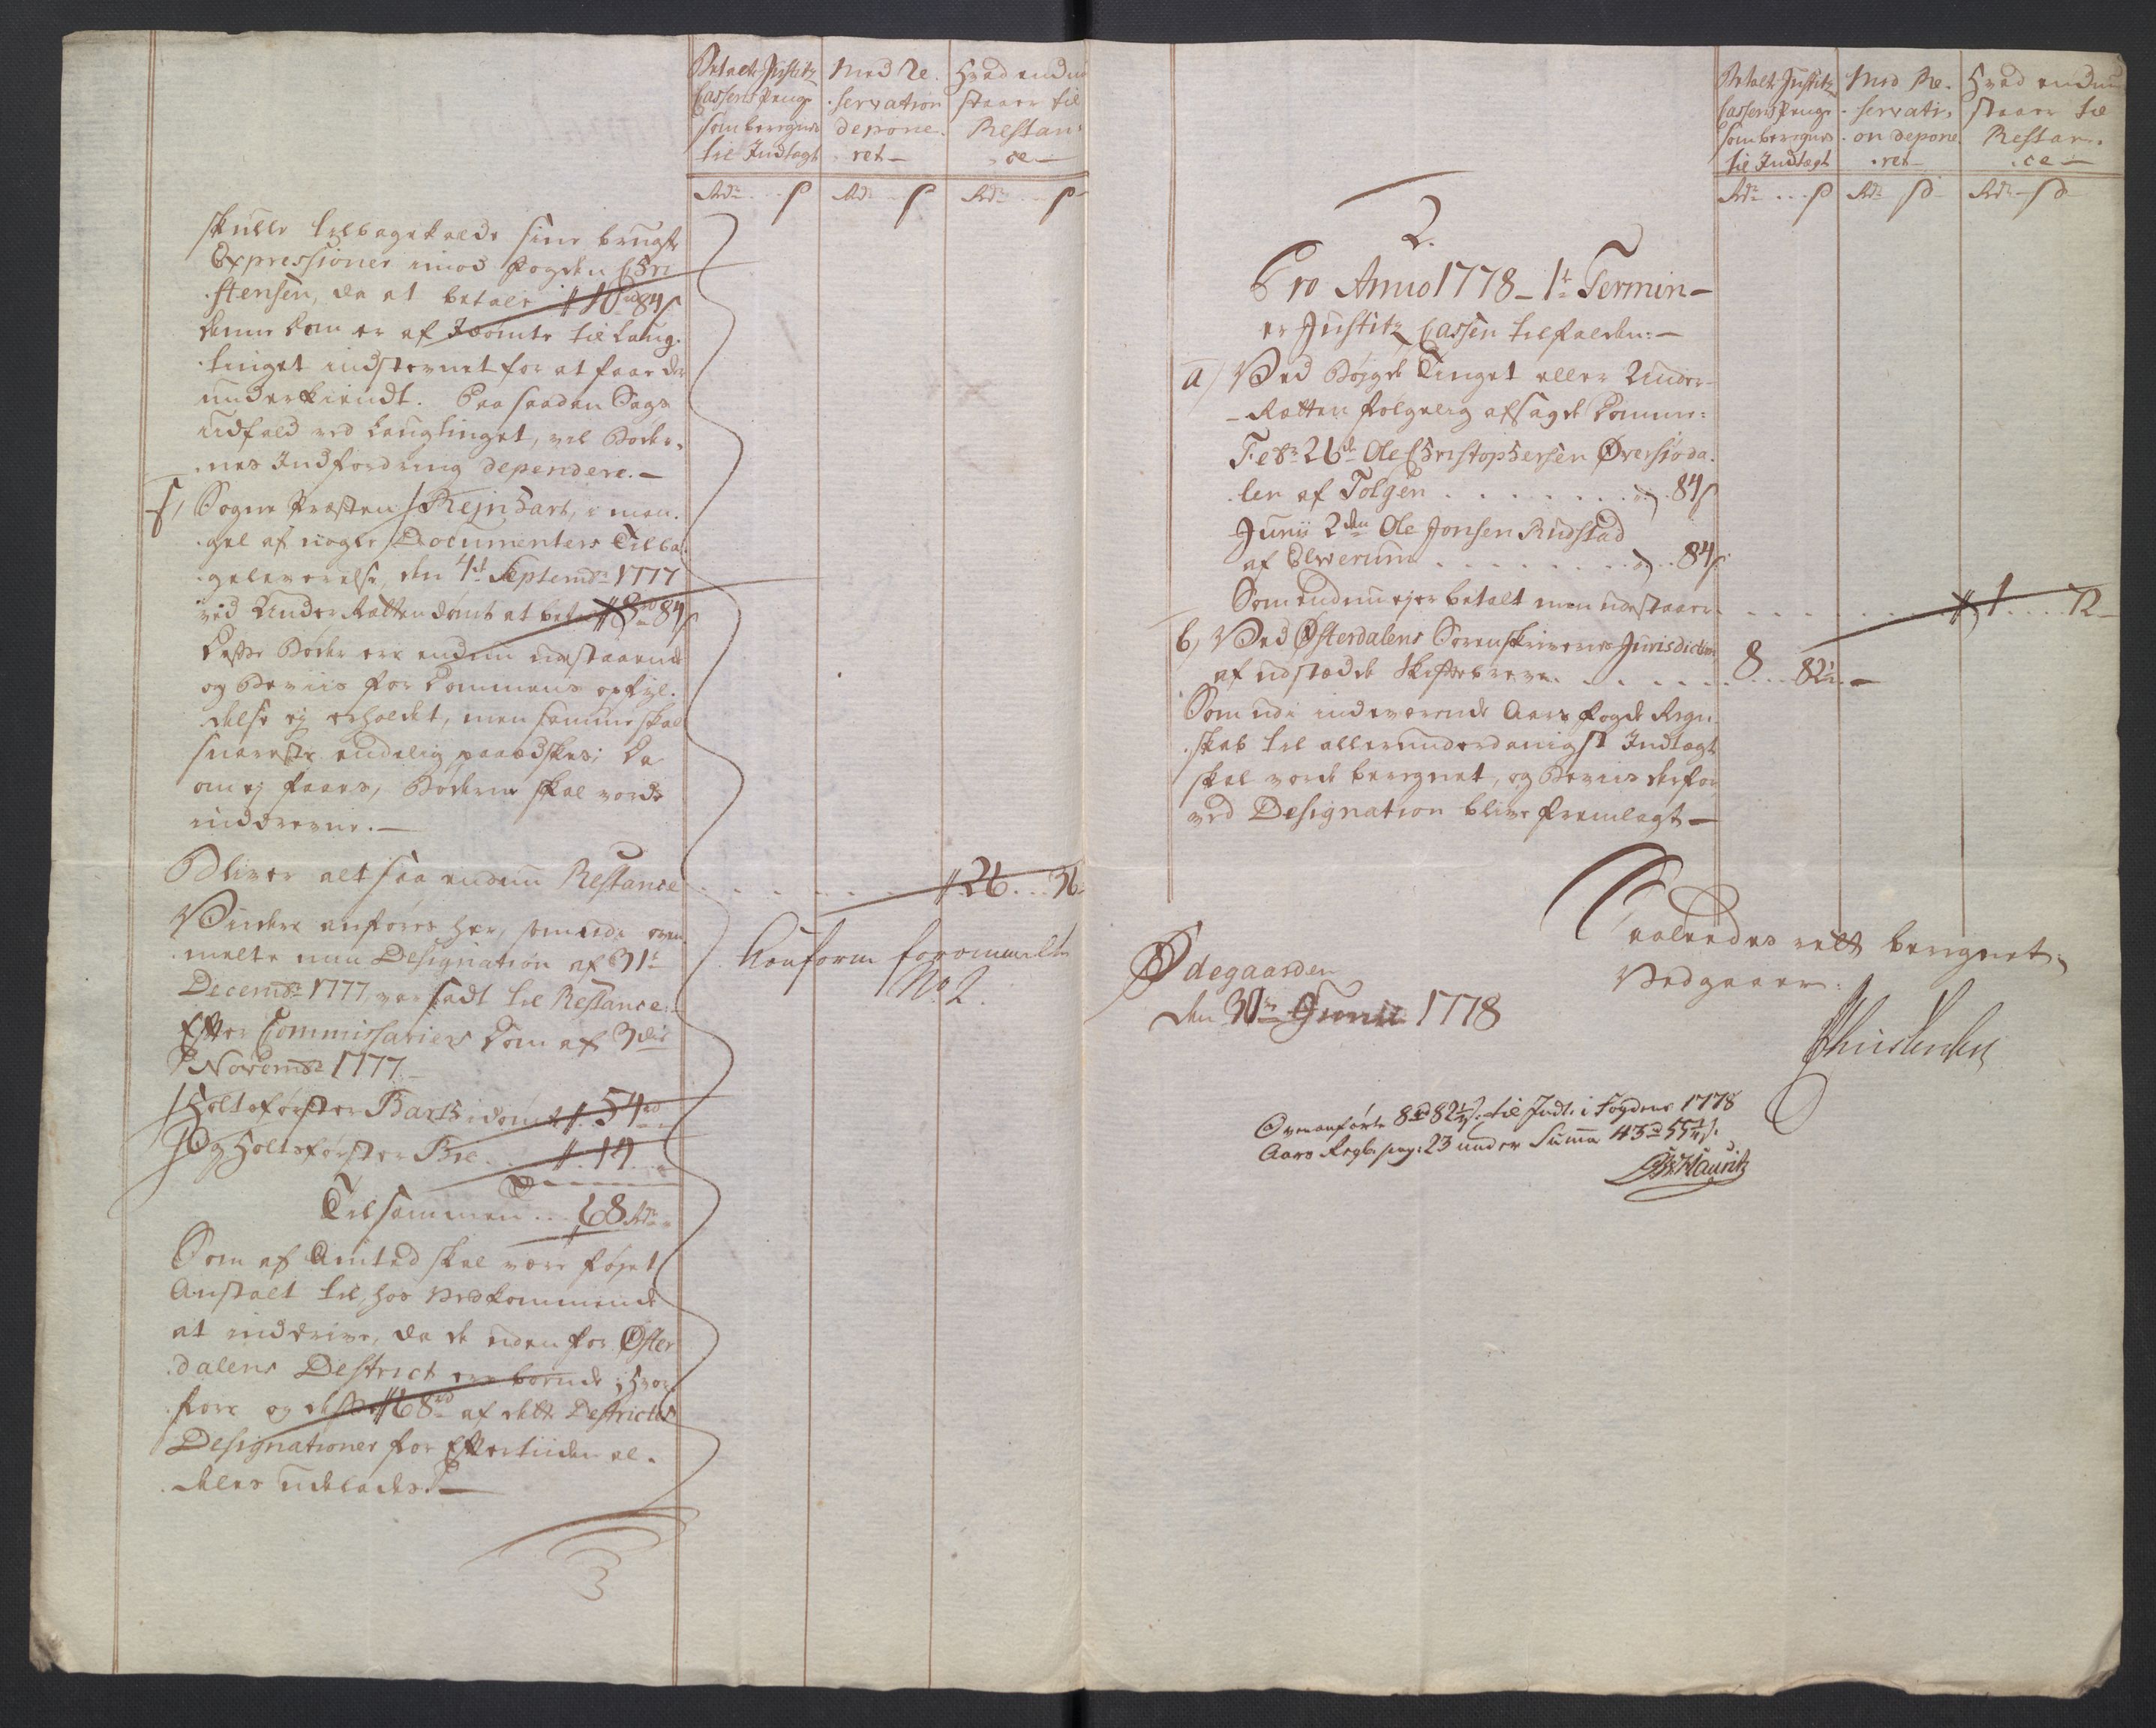 Betalt Justitz
Cassens Penge
som beregnes
til Indtægt
Med Re-
servation
depone-
ret
Hvad endnu
staaer til
Restan-
ce
Rdr ... s
Rdr .. s
Rdr ... s
skulle tilbagekalde sine brugte
Expressioner imod Fogden Chri
stensen, da at betale 10 rd 84 s
denne Dom er af Idømte til Laug-
tinget indstevnet for at faae den
underkiendt. Paa saadan Sags
Udfald ved Laugtinget, vil Bøder-
nes Indfordring dependere.
f, Sogne Præsten Rejnhart, i man-
gel af nogle Documenters Tilba-
geleverelse, den 4de Septembr 1777
ved Under Retten dømt at bet. 8 rd 84 s
Disse Bøder ere endnu udestaaende
og Beviis for Dommens opfyl-
delse ej erholdet, men samme skal
snareste endelig paaædskes; Da
om ej faaes, Bøderne skal vorde
inddrevne.
Bliver alt saa endnu Restance
26 ... 36
Videre anføres her, som udi oven-
melte min Designation af 31te
Decembr 1777 var sadt til Restance:
Efter Commissariers Dom af 3die
Novembr 1777
Holtzførster Barth idømt 54 rd
Og Holtzførster Bie .. 14
Tilsammen .. 68 Rdr
Som af Amtet skal være føjet
Anstalt til, hos Vedkommende
at inddrive, da de uden for Øster
dalens District ere boende; Hvor-
fore og disse 68 rd af dette Districts
Designationer for Eftertiiden al-
deles udelades.
Conform forommelte
No. 2.
Betalt Justitz
Cassens Penge
som beregnes
til Indtægt
Med Re-
servati-
on depone-
ret
Hvad endnu
staaer til
Restan-
ce
Rdr ... s
Rdr s
Rdr s
2.
Pro Anno 1778 - 1te Termin -
er Justitz Cassen tilfalden:
a) Ved Bøygde Tinget eller Under-
Retten følgelig afsagde Domme:
Febr 26de Ole Christophersen Øversiøda-
len af Tolgen . . . . 84 s
Junii 2den Ole Jonsen Rudstad
af Elwerum . . . . 84 s
Som endnu ej er betalt men udestaaer
1 ... 72
b) Ved Østerdalens Sorenskriveres Jurisdiction
af udstædde Skiftebreve . . . . 8 ... 82½
Som udi indeværende Aars Fogde Regn-
skab til allerunderdanigst Indtægt
skal vorde beregnet, og Beviis derfor
ved Designation blive fremlagt
Saaledes rett beregnet,
Vedgaaer.
Ødegaarden
den 30te Junii 1778
Christensen
Ovenanførte 8 rd 82½ s. til Indt. i Fogdens 1778
Aars Regb. pag: 23 under Summa 43 rd 55½ s.